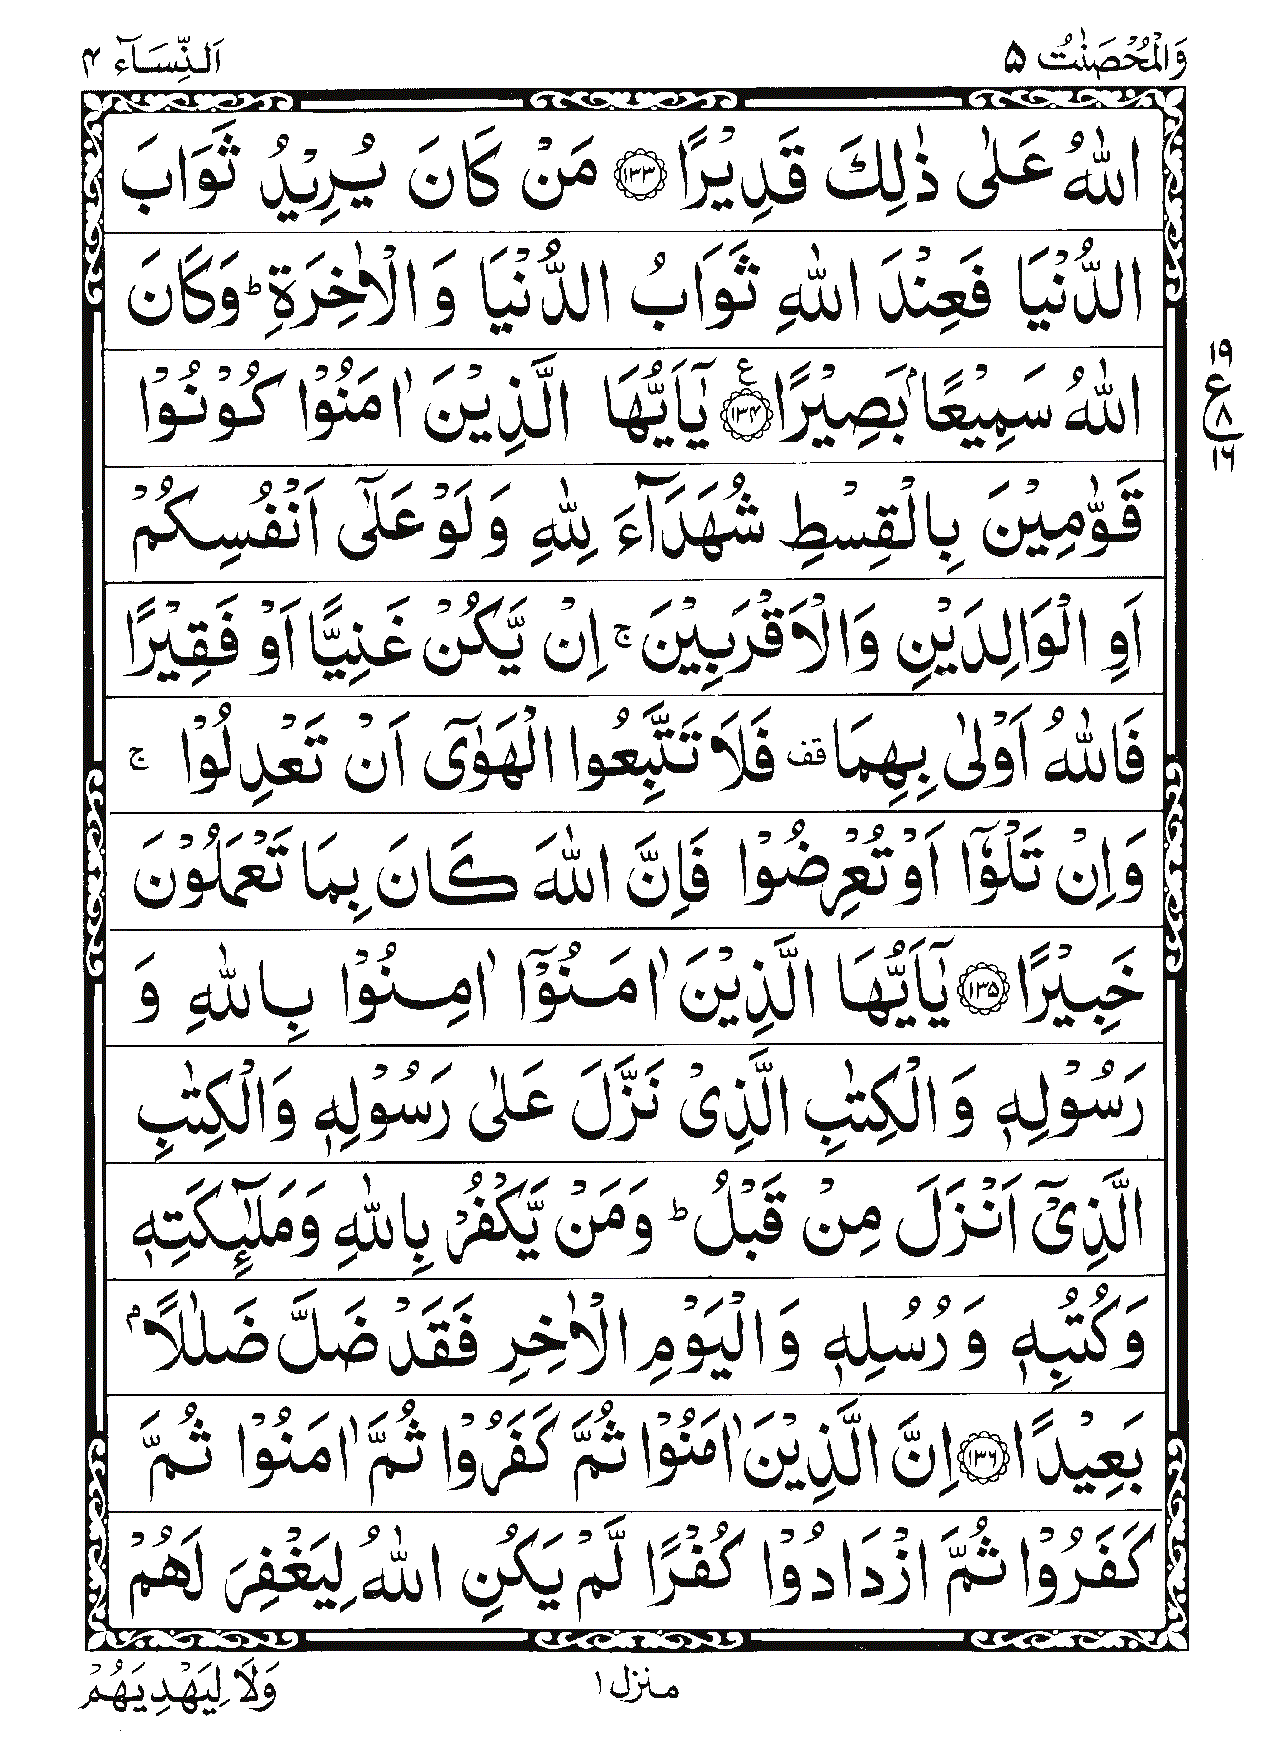 وَالْمُحْصَنٰتُ ۵
اَلنِّسَآء ۴
اللّٰهُ عَلٰى ذٰلِكَ قَدِيْرًا ﴿۱۳۳﴾ مَنْ كَانَ يُرِيْدُ ثَوَابَ
الدُّنْيَا فَعِنْدَ اللّٰهِ ثَوَابُ الدُّنْيَا وَ الْاٰخِرَةِ ؕ وَكَانَ
اللّٰهُ سَمِيْعًۢا بَصِيْرًا ﴿۱۳۴﴾ ع يٰۤاَيُّهَا الَّذِيْنَ اٰمَنُوْا كُوْنُوْا
۱۹
ع
۸
۱۶
قَوّٰمِيْنَ بِالْقِسْطِ شُهَدَآءَ لِلّٰهِ وَ لَوْ عَلٰۤى اَنْفُسِكُمْ
اَوِ الْوَالِدَيْنِ وَالْاَقْرَبِيْنَ ۚ اِنْ يَّكُنْ غَنِيًّا اَوْ فَقِيْرًا
فَاللّٰهُ اَوْلٰى بِهِمَا قف فَلَا تَتَّبِعُوا الْهَوٰۤى اَنْ تَعْدِلُوْا ۚ
وَاِنْ تَلْوٗۤا اَوْ تُعْرِضُوْا فَاِنَّ اللّٰهَ كَانَ بِمَا تَعْمَلُوْنَ
خَبِيْرًا ﴿۱۳۵﴾ يٰۤاَيُّهَا الَّذِيْنَ اٰمَنُوْۤا اٰمِنُوْا بِاللّٰهِ وَ
رَسُوْلِهٖ وَ الْكِتٰبِ الَّذِىْ نَزَّلَ عَلٰى رَسُوْلِهٖ وَالْكِتٰبِ
الَّذِىْۤ اَنْزَلَ مِنْ قَبْلُ ؕ وَمَنْ يَّكْفُرْ بِاللّٰهِ وَمَلٰٓئِكَتِهٖ
وَكُتُبِهٖ وَ رُسُلِهٖ وَ الْيَوْمِ الْاٰخِرِ فَقَدْ ضَلَّ ضَلٰلًاۢ
بَعِيْدًا ﴿۱۳۶﴾ اِنَّ الَّذِيْنَ اٰمَنُوْا ثُمَّ كَفَرُوْا ثُمَّ اٰمَنُوْا ثُمَّ
كَفَرُوْا ثُمَّ ازْدَادُوْا كُفْرًا لَّمْ يَكُنِ اللّٰهُ لِيَغْفِرَ لَهُمْ
منزل ۱
وَلَا لِيَهْدِيَهُمْ